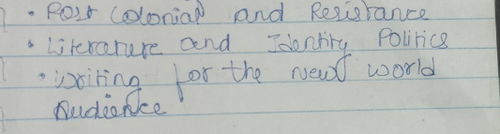 • Post Colonial and Resistance
• Literature and Identity Politics
• Writing for the new world
Audience